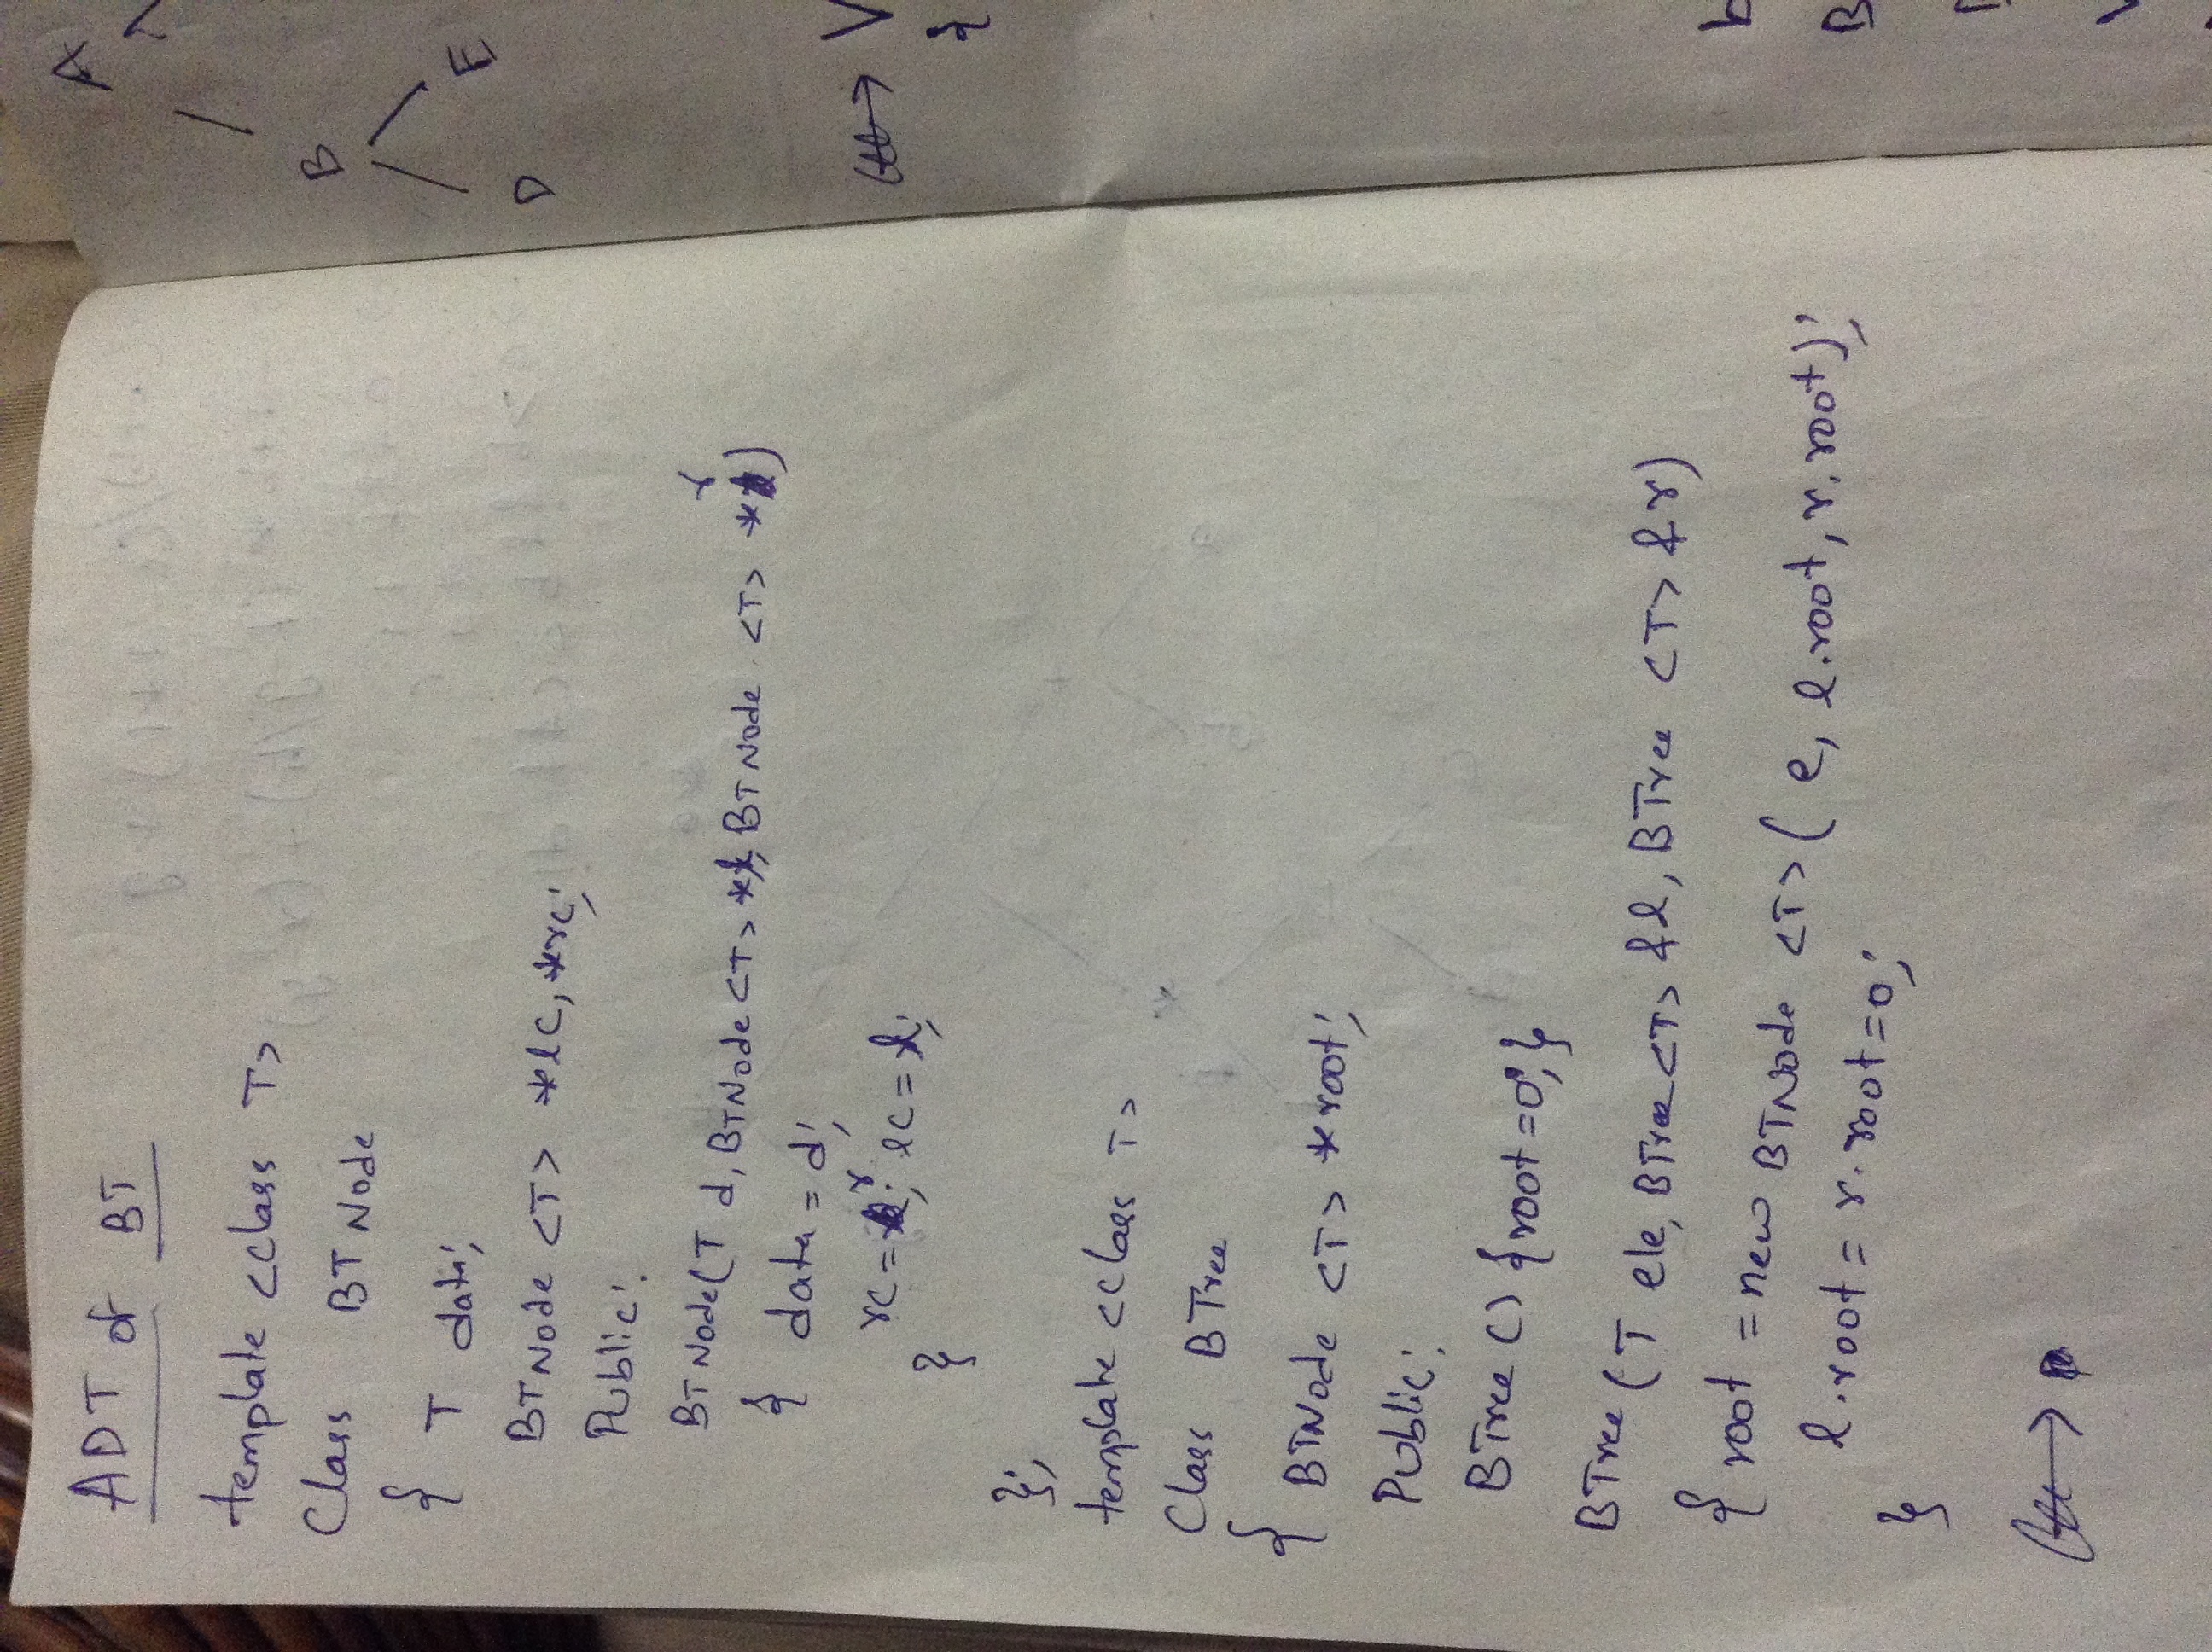 ADT of BT
template <class T>
Class BTNode
{ T data;
BTNode <T> *lc, *rc;
Public:
BTNode(T d, BTNode<T> *l, BTNode <T> *r)
{ data = d;
rc = r; lc = l;
}
};
template <class T>
Class BTree
{ BTNode <T> *root;
Public:
BTree () {root=0;}
BTree (T ele, BTree<T> &l, BTree <T> &r)
{ root = new BTNode <T> ( e, l.root, r.root);
l.root = r.root=0;
}
A
B
D
E
V
{
b
B